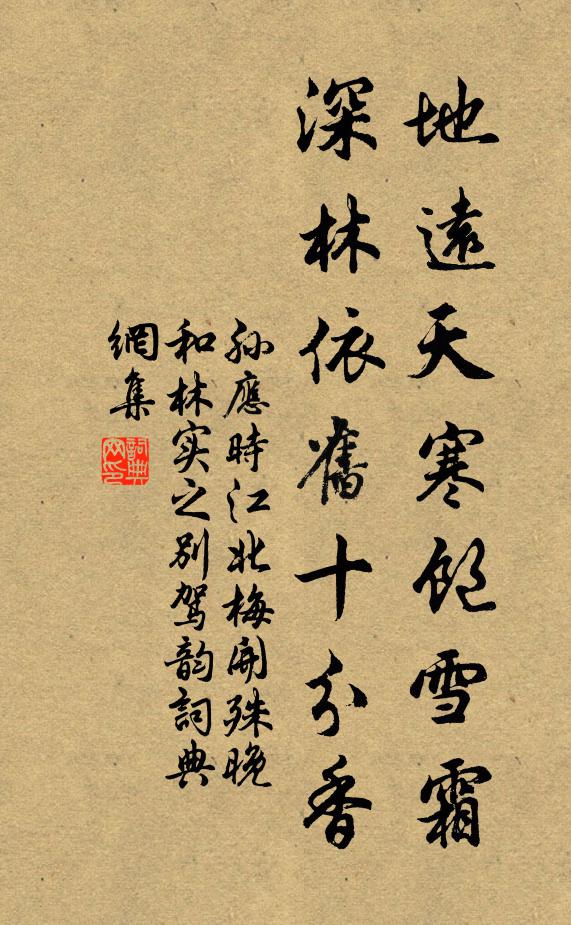 地遠天寒飽雪霜
深林依舊十分香
孙應時江北梅開殊晚
和林实之别駕韵詞典
網集
詞典
网印